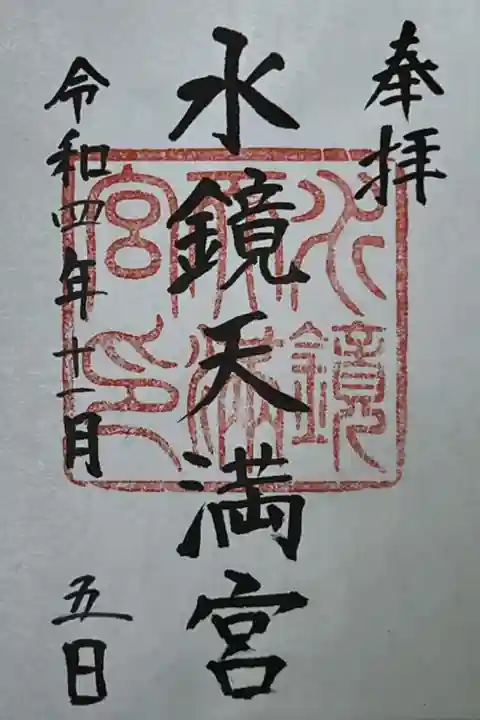 奉拝
水鏡天満宮
令和四年十一月五日
水鏡
天満
宮印